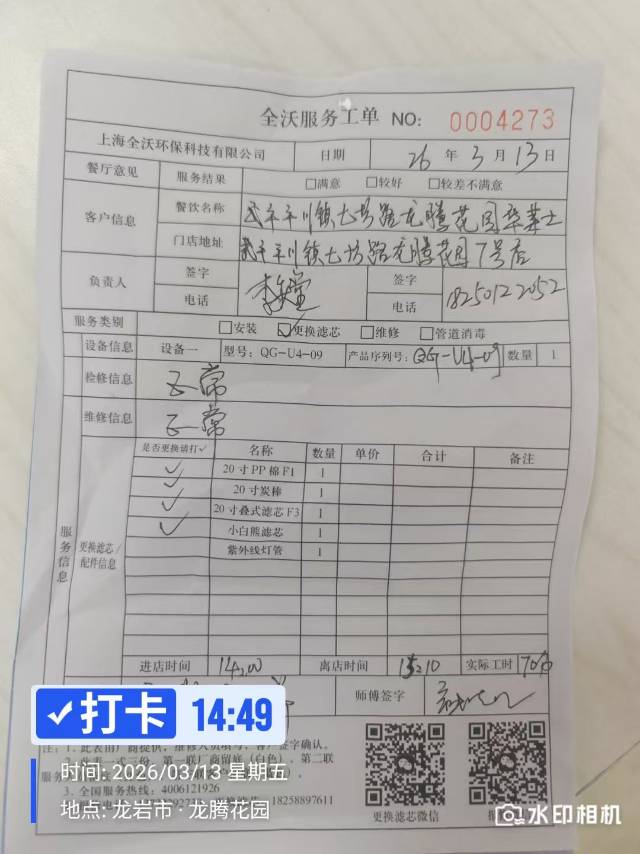 全沃服务工单 NO: 0004273
上海全沃环保科技有限公司 日期 26 年 3 月 13 日
餐厅意见 服务结果 □满意 □较好 □较差不满意
客户信息 餐饮名称 武平平川镇七坊路龙腾花园华莱士
门店地址 武平平川镇七坊路龙腾花园7号店
负责人 签字 签字
电话 电话 18250122052
服务类别 □安装 ☑更换滤芯 □维修 □管道消毒
设备信息 设备一 型号: QG-U4-09 产品序列号: QG-U4-09 数量 1
检修信息 正常
维修信息 正常
服务信息 更换滤芯/配件信息
是否更换请打✓ 名称 数量 单价 合计 备注
✓ 20寸PP棉F1 1
✓ 20寸炭棒 1
✓ 20寸叠式滤芯F3 1
✓ 小白熊滤芯 1
紫外线灯管 1
进店时间 14:00 离店时间 15:10 实际工时 70分
师傅签字
打卡 14:49
注: 1. 此表由厂商提供, 维修人员填写, 客户签字确认。
一式三份, 第一联厂商留底(白色)、第二联
3. 全国服务热线: 4006121926
18258897611
更换滤芯微信
时间: 2026/03/13 星期五
地点: 龙岩市·龙腾花园
水印相机